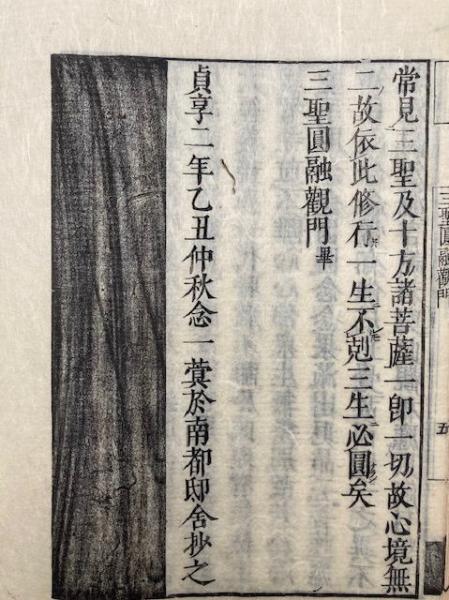 三聖圓融觀門
五
常見三聖及十方諸菩薩一即一切故心境無
二故依此修行一生不剋三生必圓矣
三聖圓融觀門畢
貞享二年乙丑仲秋念一蓂於南都邸舍抄之